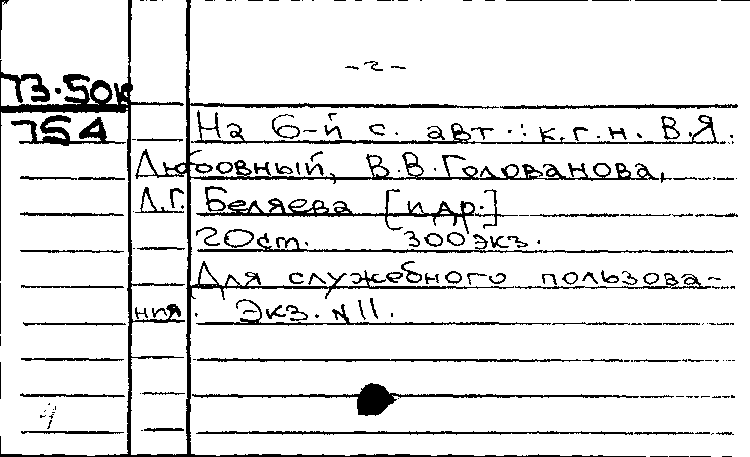 -2-
73.50к
754
На 6-й с. авт.: к.г.н. В.Я.
Любовный, В.В. Голованова,
Л.Г. Беляева [и др.]
20 ст. 300 экз.
Для служебного пользова-
ния. Экз. N 11.